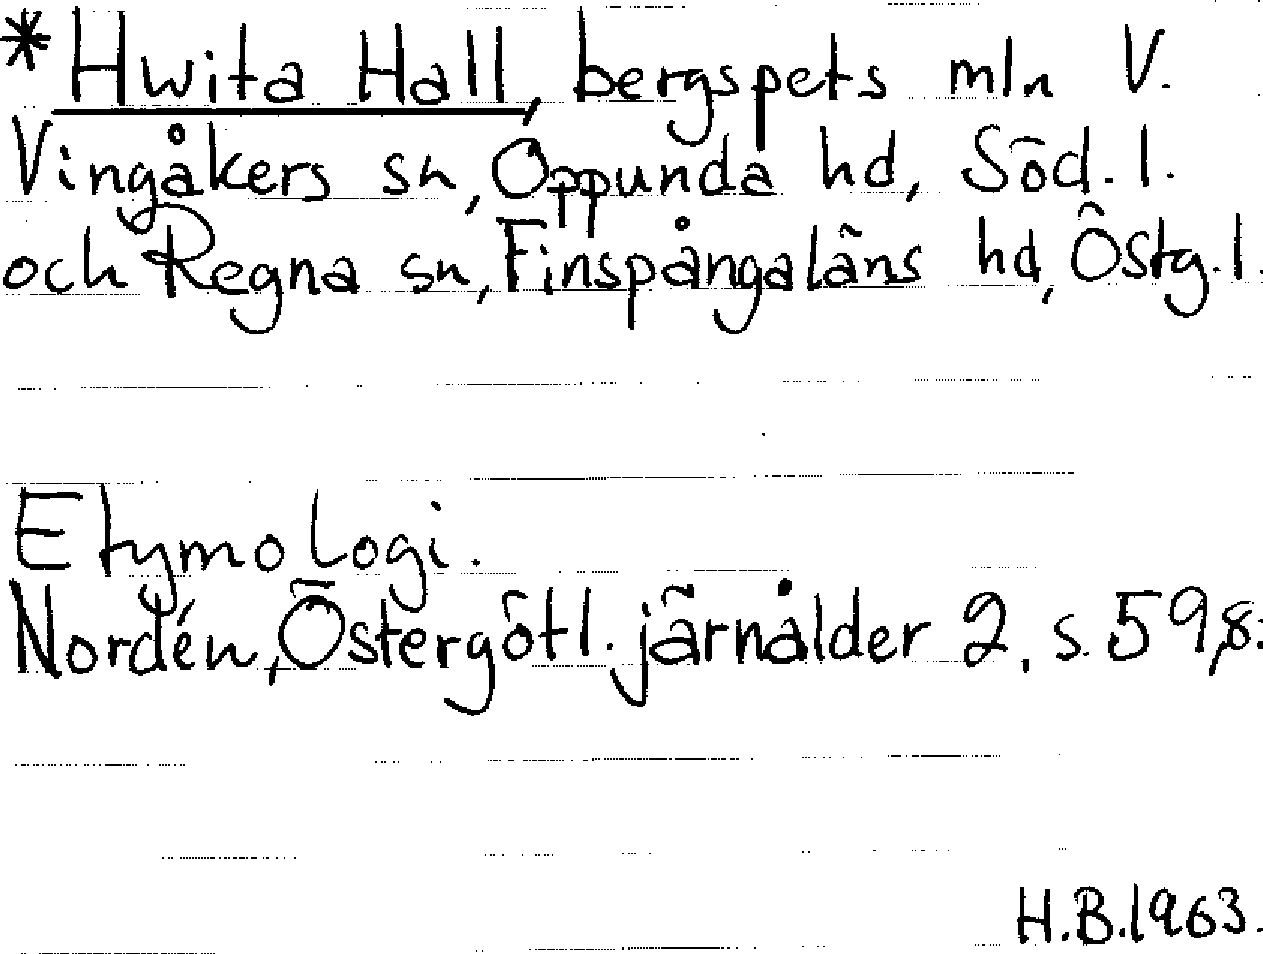 *Hwita Hall, bergspets mln V.
Vingåkers sn, Oppunda hd, Söd. l.
och Regna sn, Finspångaläns hd, Östg. l.
Etymologi.
Nordén, Östergötl. järnålder 2, s. 59,8:
H.B. 1963.